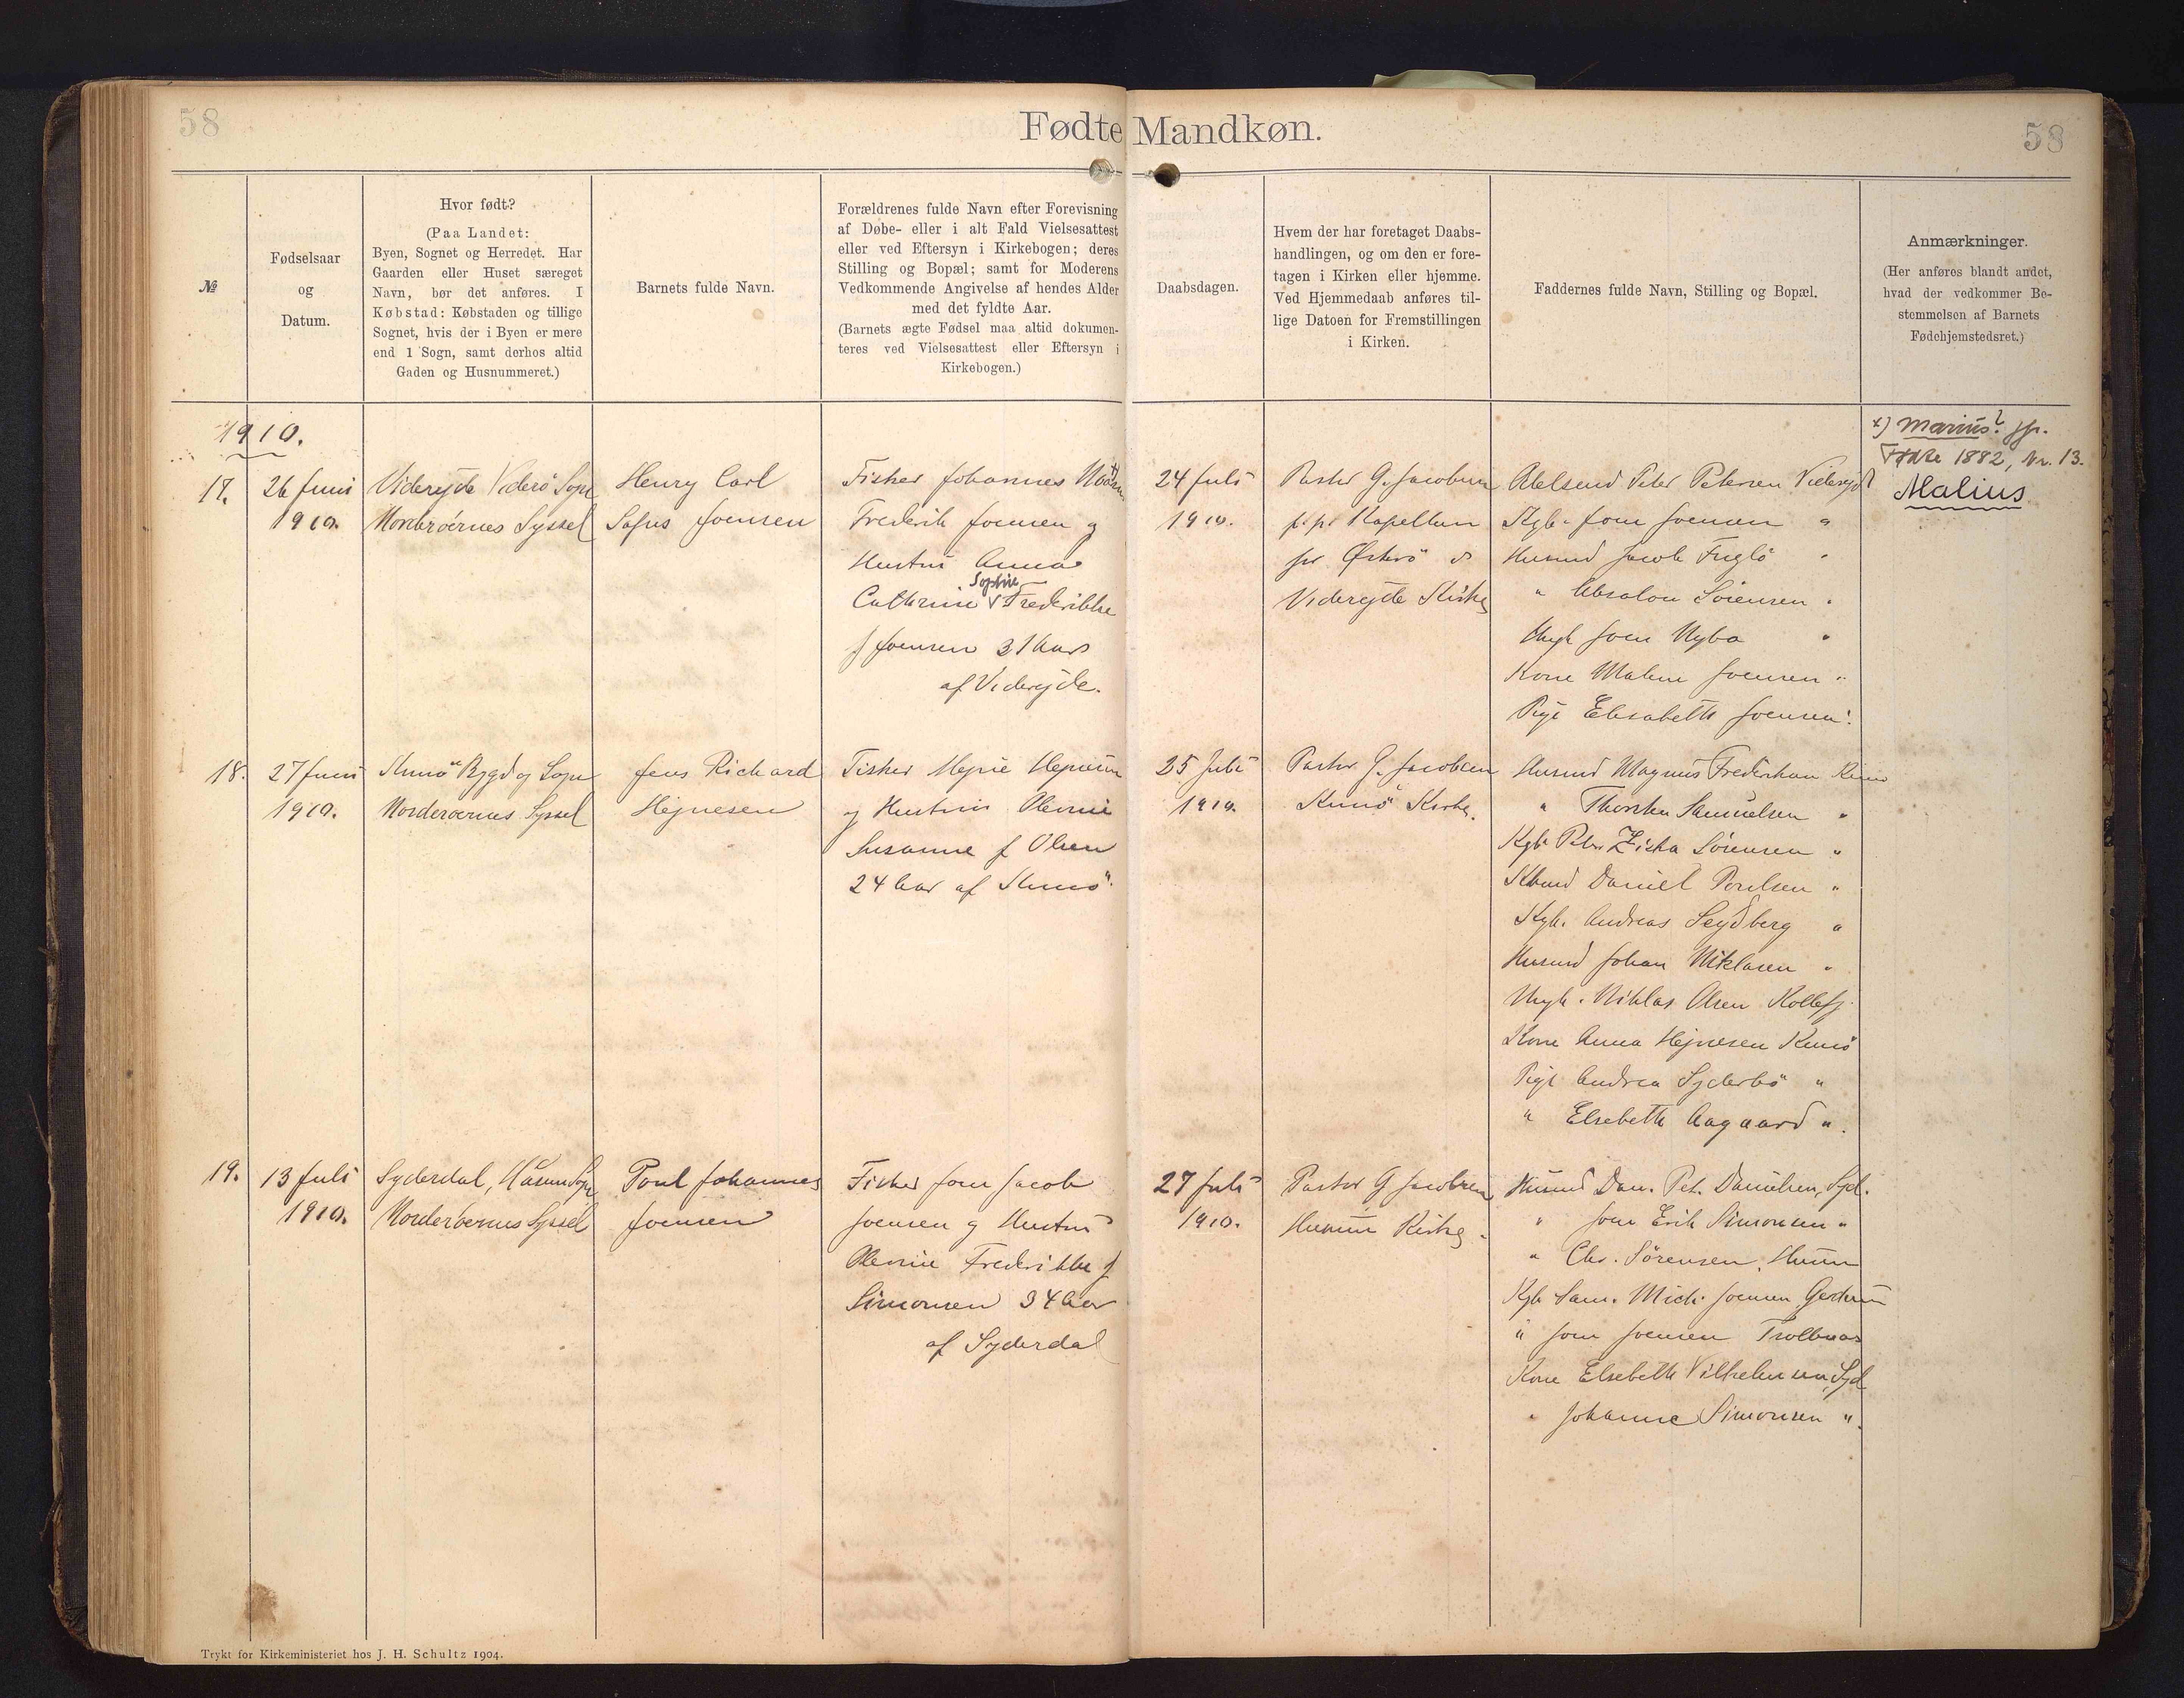 58
Fødte Mandkøn.
58
№
Fødselsaar
og
Datum.
Hvor født?
(Paa Landet:
Byen, Sognet og Herredet. Har
Gaarden eller Huset særeget
Navn, bør det anføres. I
Købstad: Købstaden og tillige
Sognet, hvis der i Byen er mere
end 1 Sogn, samt derhos altid
Gaden og Husnummeret.)
Barnets fulde Navn.
Forældrenes fulde Navn efter Forevisning
af Døbe- eller i alt Fald Vielsesattest
eller ved Eftersyn i Kirkebogen; deres
Stilling og Bopæl; samt for Moderens
Vedkommende Angivelse af hendes Alder
med det fyldte Aar.
(Barnets ægte Fødsel maa altid dokumen-
teres ved Vielsesattest eller Eftersyn i
Kirkebogen.)
Daabsdagen.
Hvem der har foretaget Daabs-
handlingen, og om den er fore-
tagen i Kirken eller hjemme.
Ved Hjemmedaab anføres til-
lige Datoen for Fremstillingen
i Kirken.
Faddernes fulde Navn, Stilling og Bopæl.
Anmærkninger.
(Her anføres blandt andet,
hvad der vedkommer Be-
stemmelsen af Barnets
Fødehjemstedsret.)
1910.
17.
26 Juni
1910.
Viderejde Viderö Sogn
Norderöernes Syssel
Henry Carl
Sofus Joensen
Fisker Johannes
Frederik Joensen og
Hustru Anna
Sophie
Cathrine V Frederikke
f Joensen 31 Aar
af Viderejde.
24 Juli
1910.
Pastor G. Jacobsen
p. p. Kapellan
for Østerö
Viderejde Kirke
Peter Petersen Viderejde
Kgb. Joen Joensen "
Husmd Jacob Fuglö "
" Absalon Sörensen "
Ungk Joen Nybo "
Kone Malene Joensen "
Pige Elisabeth Joensen "
x) Marius? jfr.
Fødte 1882, Nr. 13.
Malius
18.
27 Juni
1910.
Kunö Bygd og Sogn
Norderoernes Syssel
Jens Richard
Hejnesen
Fisker Hejnesen
og Hustru Olevine
Susanne f Olsen
24 Aar af Kunö.
25 Juli
1910.
Pastor G. Jacobsen
Kunö Kirke.
Husmd Magnus Frederiksen Kunö
" Thorsten Samuelsen "
Kgb. Peter Ziska Sörensen "
Daniel Poulsen "
Kgb. Andreas Sejdberg "
Husmd Johan Niklasen "
Ungk. Niklas Olsen Kollefj.
Kone Anna Hejnesen Kunö
Pige Andrea Syderbö "
" Elsebeth Aagaard ".
19.
13 Juli
1910.
Syderdal, Husum Sogn
Norderöernes Syssel
Poul Johannes
Joensen
Fisker Joen Jacob
Joensen og Hustru
Olevine Frederikke f
Simonsen 34 Aar
af Syderdal
27 Juli
1910.
Pastor G Jacobsen
Husum Kirke.
Husmd Dan. Pet. Danielsen, Syd.
" Joen Erik Simonsen "
" Chr. Sörensen, Husum
Kgb Sam. Mich. Joensen
" Joen Joensen Trollenæs
Kone Elsebeth Vilhelmsen, Syd
" Johanne Simonsen ".
Trykt for Kirkeministeriet hos J. H. Schultz 1904.